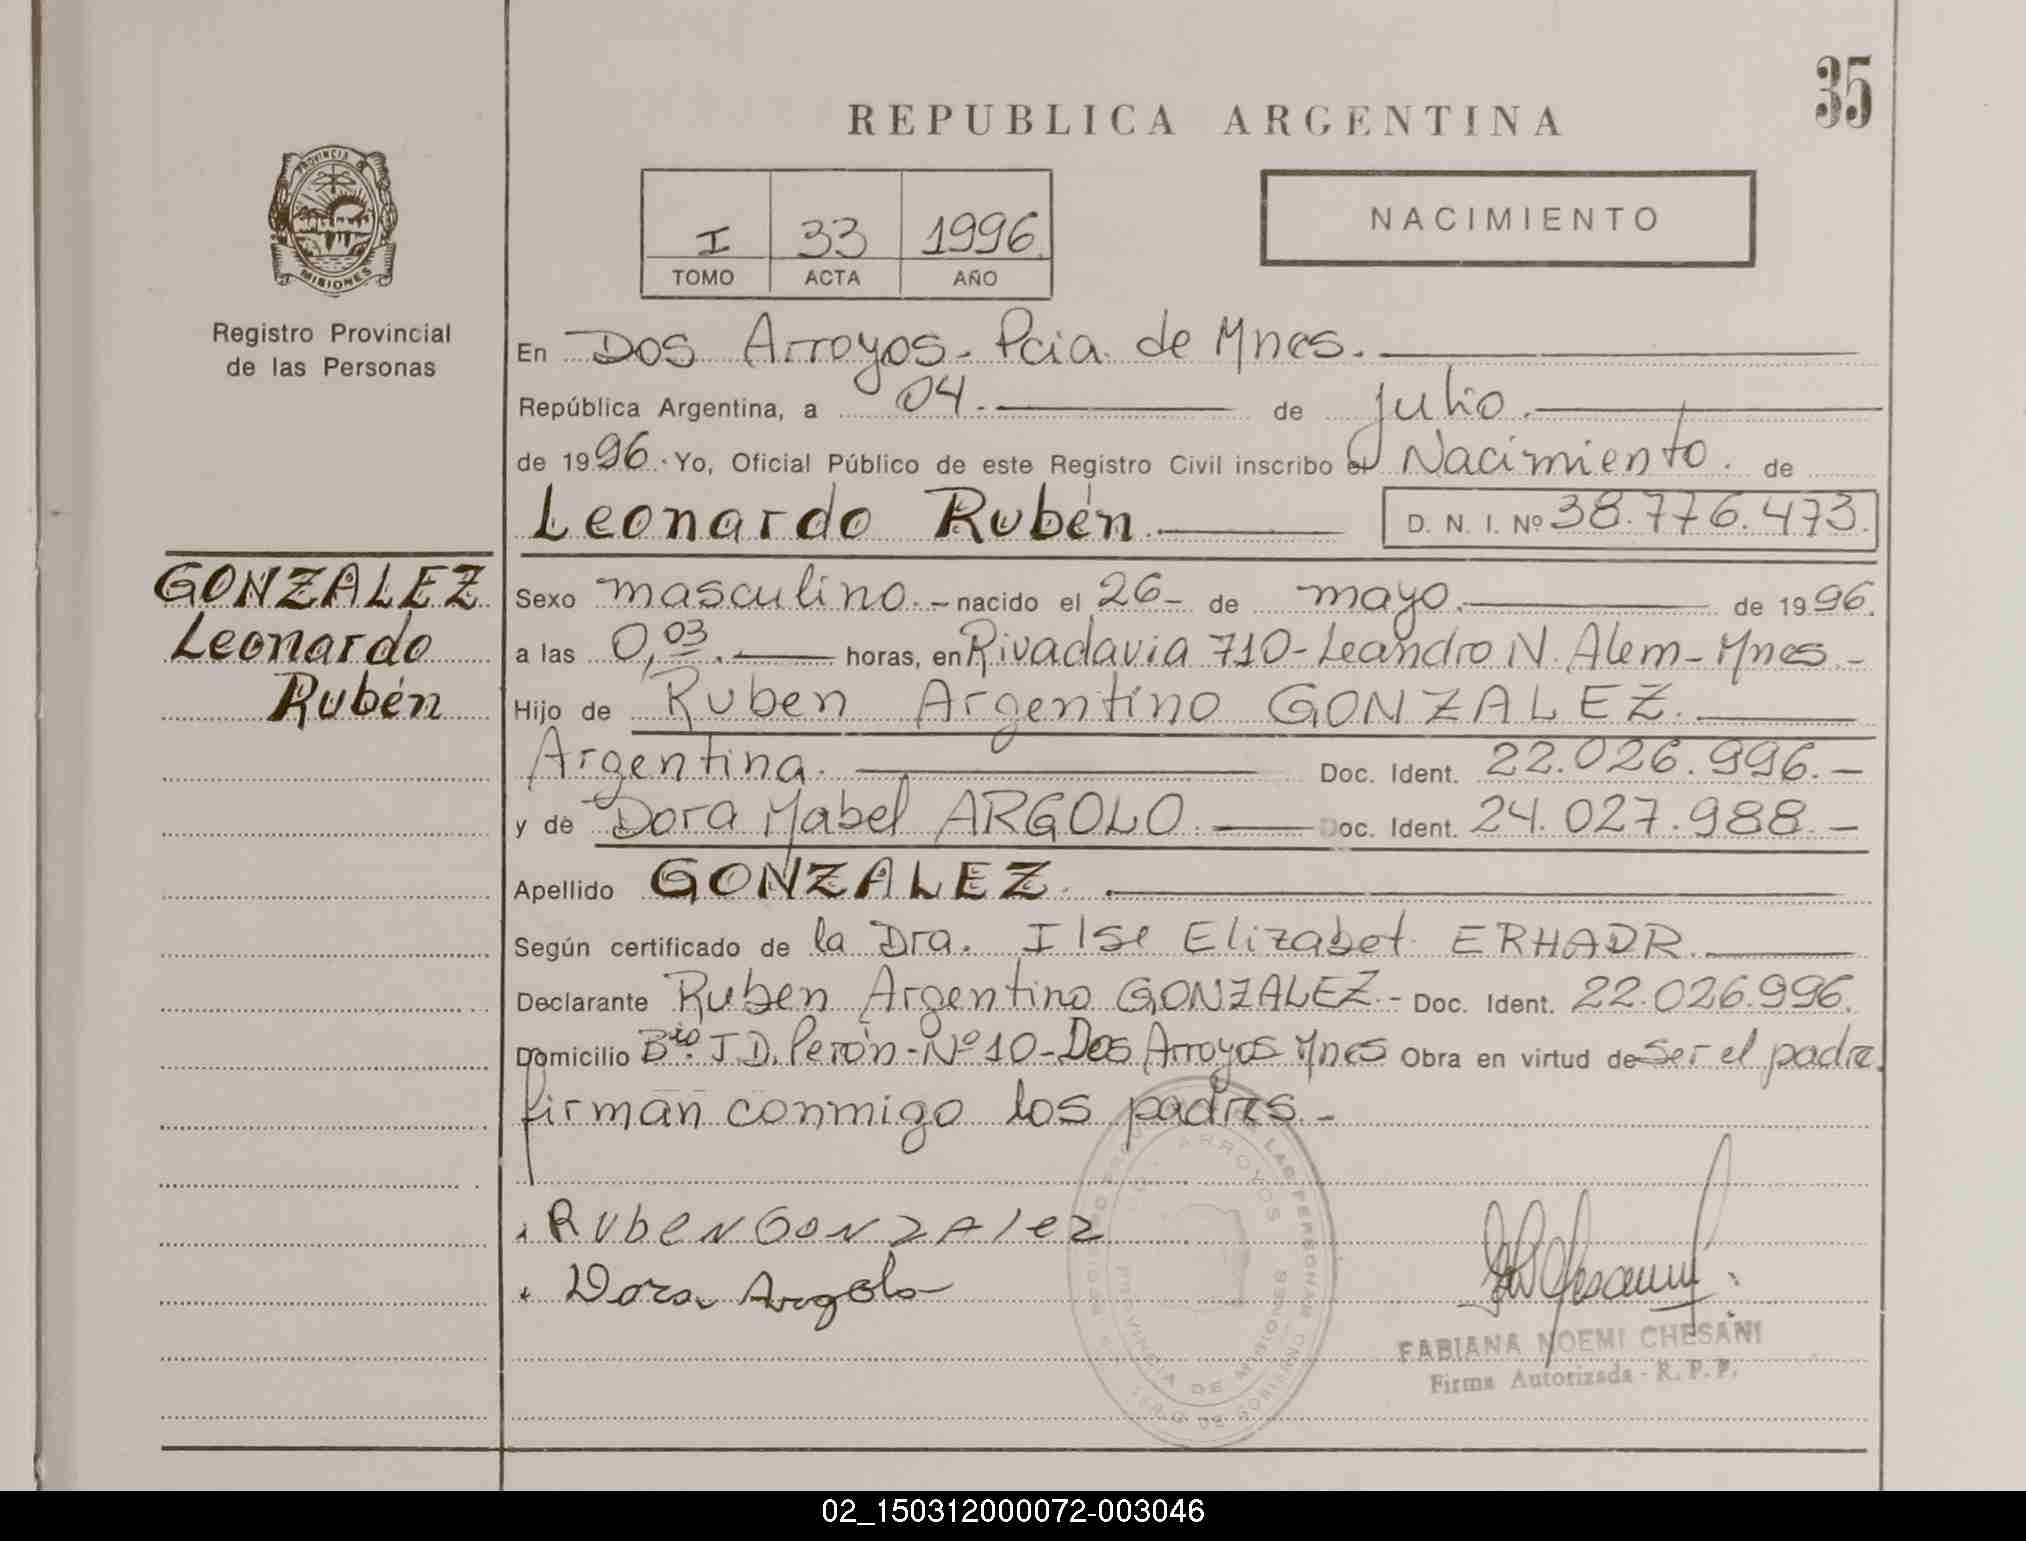 35
REPUBLICA ARGENTINA
PROVINCIA DE
MISIONES
Registro Provincial
de las Personas
I 33 1996
TOMO ACTA AÑO
NACIMIENTO
En Dos Arroyos. Pcia. de Mnes.
República Argentina, a 04. de julio.
de 1996. Yo, Oficial Público de este Registro Civil inscribo el Nacimiento. de
Leonardo Rubén. D. N. I. Nº 38.776.473.
GONZALEZ
Leonardo
Rubén
Sexo masculino. - nacido el 26- de mayo. de 1996.
a las 0,03. horas, en Rivadavia 710-Leandro N. Alem-Mnes.-
Hijo de Ruben Argentino GONZALEZ.
Argentina. Doc. Ident. 22.026.996.-
y de Dora Mabel ARGOLO. Doc. Ident. 24.027.988.-
Apellido GONZALEZ.
Según certificado de la Dra. Ilse Elizabet ERHADR.
Declarante Ruben Argentino GONZALEZ.- Doc. Ident. 22.026.996.
Domicilio Bio. J.D. Perón-Nº10-Dos Arroyos Mnes Obra en virtud de ser el padre.
firman conmigo los padres.-
Ruben Gonzalez
Dora Argolo
ARROYOS
PROVINCIA DE MISIONES
DE LAS PERSONAS
FABIANA NOEMI CHESANI
Firma Autorizada - R. P. P.
02_150312000072-003046